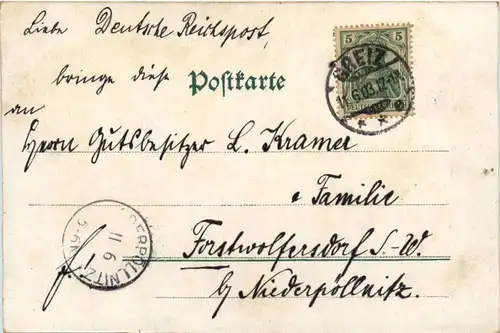 Liebe Deutsche Reichspost,
bringe diese Postkarte
an
Herrn Gutsbesitzer L. Kramer
e Familie
Forstwolfersdorf S.-W.
by Niederpöllnitz.
5 5
GREIZ
11.6.03.
11 6
5-6N